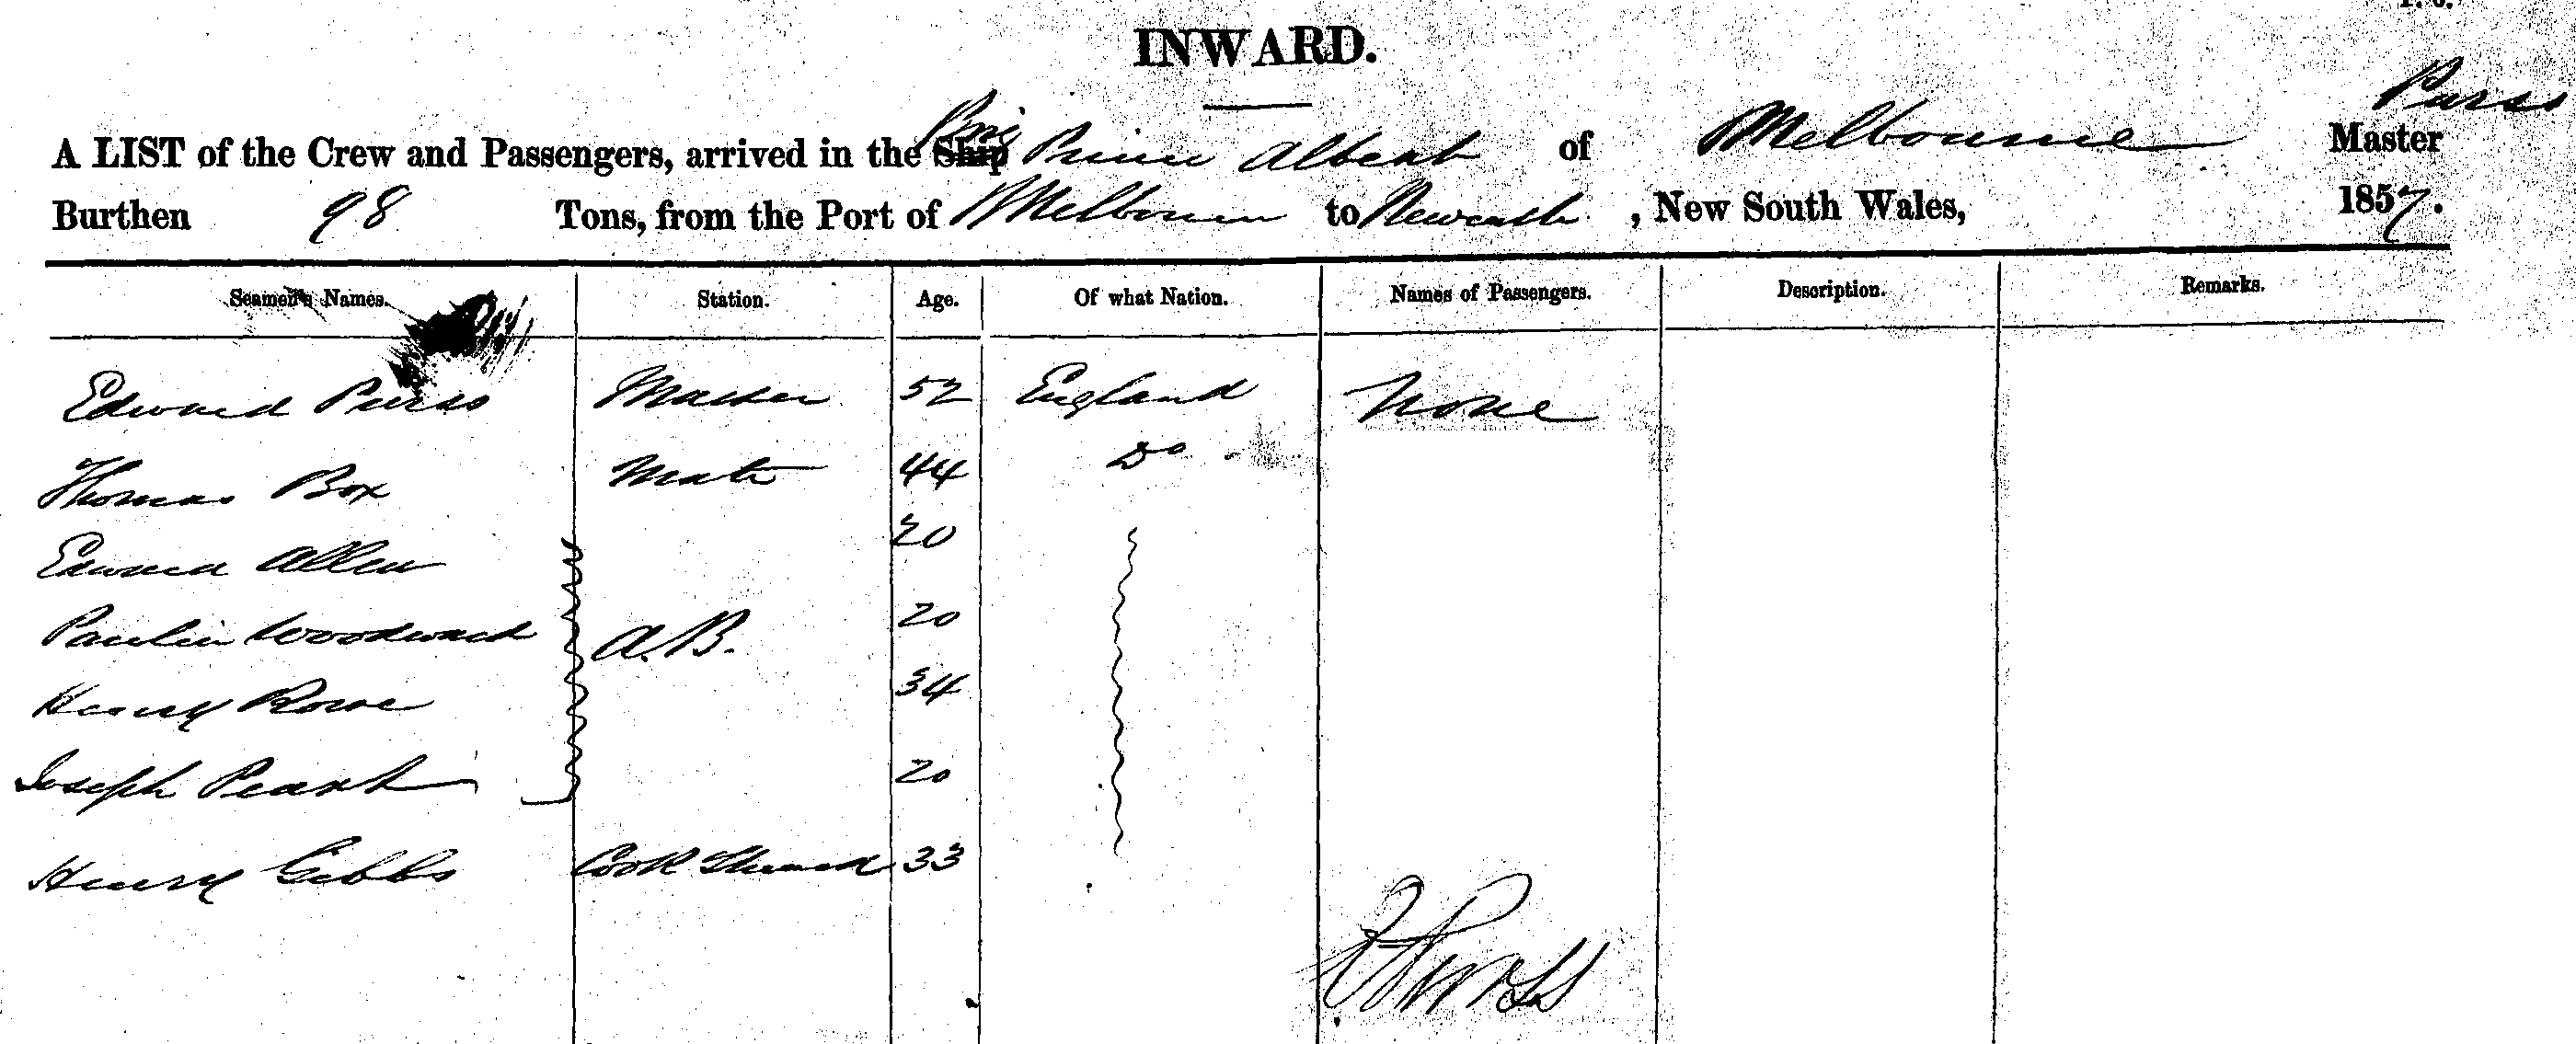 INWARD.
A LIST of the Crew and Passengers, arrived in the Ship Brig Prince Albert of Melbourne Purss Master
Burthen 98 Tons, from the Port of Melbourne to Newcastle, New South Wales, 1857.
Seamen's Names. Station. Age. Of what Nation. Names of Passengers. Description. Remarks.
Edward Purss Master 52 England None
Thomas Box Mate 44 Do
Edward Allen 20
Paulin Woodward A.B. 20
Henry Rowe 34
Joseph 20
Henry Gibbs Cook Steward 33
Purss